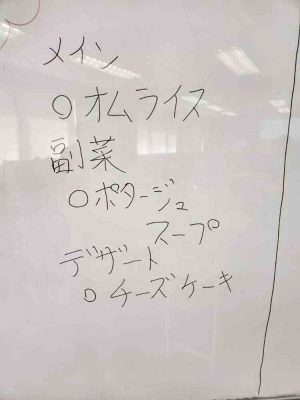 メイン
○オムライス
副菜
○ポタージュ
スープ
デザート
○チーズケーキ